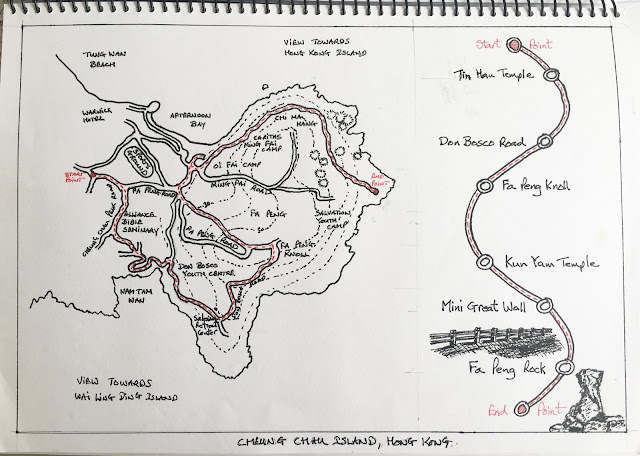 TUNG WAN
BEACH
VIEW TOWARDS
HONG KONG ISLAND
WARWICK
HOTEL
AFTERNOON
BAY
CHI MA
HANG
CARITAS
MING FAI
CAMP
OI FAI CAMP
MING FAI ROAD
START
POINT
SPORTS
GROUND
FA PENG ROAD
END
POINT
CHEUNG CHAU PEAK ROAD
ALLIANCE
BIBLE
SEMINARY
50
FA PENG
50
SALVATION
YOUTH
CAMP
FA PENG ROAD
FA PENG
KNOLL
DON BOSCO
YOUTH CENTRE
DON BOSCO ROAD
NAM TAM
WAN
Salesian
Action
Center
VIEW TOWARDS
WAI LING DING ISLAND
Start Point
Tin Hau Temple
Don Bosco Road
Fa Peng Knoll
Kun Yam Temple
Mini Great Wall
Fa Peng Rock
End Point
CHEUNG CHAU ISLAND, HONG KONG.